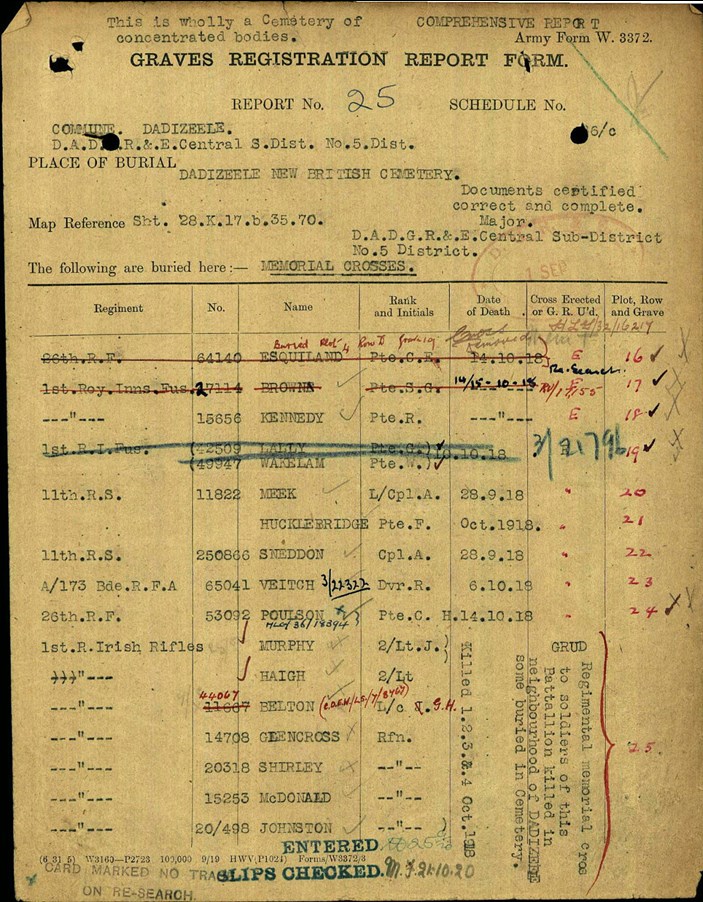 This is wholly a Cemetery of COMPREHENSIVE REPORT
concentrated bodies. Army Form W. 3372.
GRAVES REGISTRATION REPORT FORM.
REPORT No. 25 SCHEDULE No. 6/c
COMMUNE. DADIZEELE.
D.A.D.G.R.&.E.Central S.Dist. No.5.Dist.
PLACE OF BURIAL DADIZEELE NEW BRITISH CEMETERY.
Documents certified
correct and complete.
Map Reference Sht. 28.K.17.b.35.70. Major.
D.A.D.G.R.&.E.Central Sub-District
No.5 District.
1 SEP
The following are buried here:— MEMORIAL CROSSES.
Regiment No. Name Rank and Initials Date of Death. Cross Erected or G. R. U'd, Plot, Row and Grave
Buried Plot 4 Row D Grave 19 Cross removed
26th.R.F. 64140 ESQUILAND Pte.C.E. 14.10.18 E 16
Re-Search.
1st.Roy.Inns.Fus. 27114 BROWNE Pte.S.G. 14/15-10-18 17
---"--- 15656 KENNEDY Pte.R. ---"--- E 18
1st.R.I.Fus. (42509 LALLY Pte.C.) 10.18 3/21796 19
(49947 WAKELAM Pte.W.)
11th.R.S. 11822 MEEK L/Cpl.A. 28.9.18 " 20
HUCKLEBRIDGE Pte.F. Oct.1918. " 21
11th.R.S. 250866 SNEDDON Cpl.A. 28.9.18 " 22
A/173 Bde.R.F.A 65041 VEITCH 3/22322 Dvr.R. 6.10.18 " 23
26th.R.F. 53092 POULSON Pte.C.H. 14.10.18 " 24
1st.R.Irish Rifles MURPHY 2/Lt.J.
---"--- HAIGH 2/Lt
44067
---"--- 11607 BELTON L/c G.H.
---"--- 14708 GLENCROSS Rfn.
---"--- 20318 SHIRLEY --"--
---"--- 15253 McDONALD --"--
---"--- 20/498 JOHNSTON --"--
Killed 1.2.3.&.4 Oct.1918
GRUD Regimental memorial cros
to soldiers of this
Battallion killed in
neighbourhood of DADIZEELE
some buried in Cemetery.
25.
ENTERED
(6 31 5) W3160—P2723 100,000 9/19 HWV(P1024) Forms/W3372/3
CARD MARKED NO TRA SLIPS CHECKED. 21.10.20
ON RE-SEARCH.